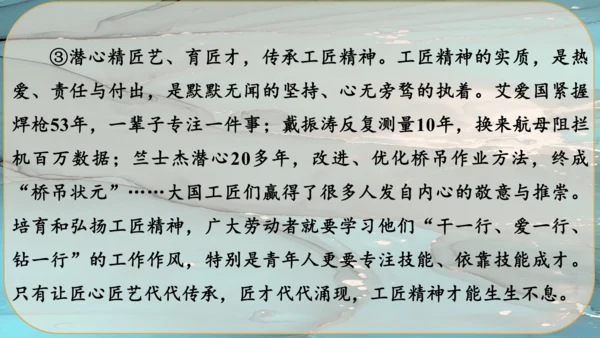 ③潜心精匠艺、育匠才，传承工匠精神。工匠精神的实质，是热
爱、责任与付出，是默默无闻的坚持、心无旁骛的执着。艾爱国紧握
焊枪53年，一辈子专注一件事；戴振涛反复测量10年，换来航母阻拦
机百万数据；竺士杰潜心20多年，改进、优化桥吊作业方法，终成
“桥吊状元”……大国工匠们赢得了很多人发自内心的敬意与推崇。
培育和弘扬工匠精神，广大劳动者就要学习他们“干一行、爱一行、
钻一行”的工作作风，特别是青年人更要专注技能、依靠技能成才。
只有让匠心匠艺代代传承，匠才代代涌现，工匠精神才能生生不息。